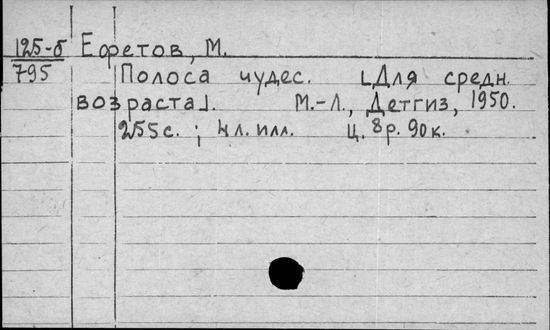 125-б Ефетов, М.
795 Полоса чудес. [Для средн.
возраста]. М.-Л., Детгиз, 1950.
255 с. ; 4 л. илл. Ц. 8 р. 90 к.